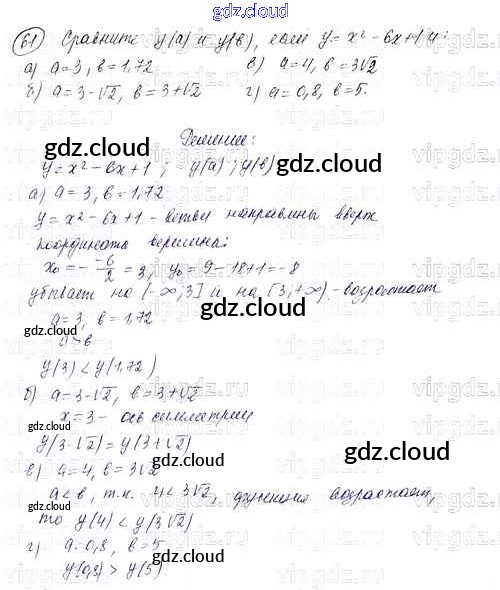 gdz.cloud
61 Сравните y(a) и y(в), если y = x² - 6x + 1 и:
а) a = 3, в = 1,72 в) a = 4, в = 3√2
б) a = 3 - √2, в = 3 + √2 г) a = 0,8, в = 5.
Решение:
gdz.cloud
y = x² - 6x + 1; y(a); y(в)
gdz.cloud
а) a = 3, в = 1,72
y = x² - 6x + 1 - ветви направлины вверх
координаты вершины:
gdz.cloud
x₀ = - -6/2 = 3, y₀ = 9 - 18 + 1 = -8
убывает на (-∞; 3] и на [3; +∞) - возрастает
gdz.cloud
a = 3, в = 1,72
gdz.cloud
a > в
y(3) < y(1,72)
gdz.cloud
б) a = 3 - √2, в = 3 + √2
x = 3 - ось симметрии
gdz.cloud
y(3 - √2) = y(3 + √2)
gdz.cloud
в) a = 4, в = 3√2
gdz.cloud
a < в, т.к. 4 < 3√2, функция возрастает,
то y(4) < y(3√2)
г) a = 0,8, в = 5
gdz.cloud
y(0,8) > y(5).
gdz.cloud